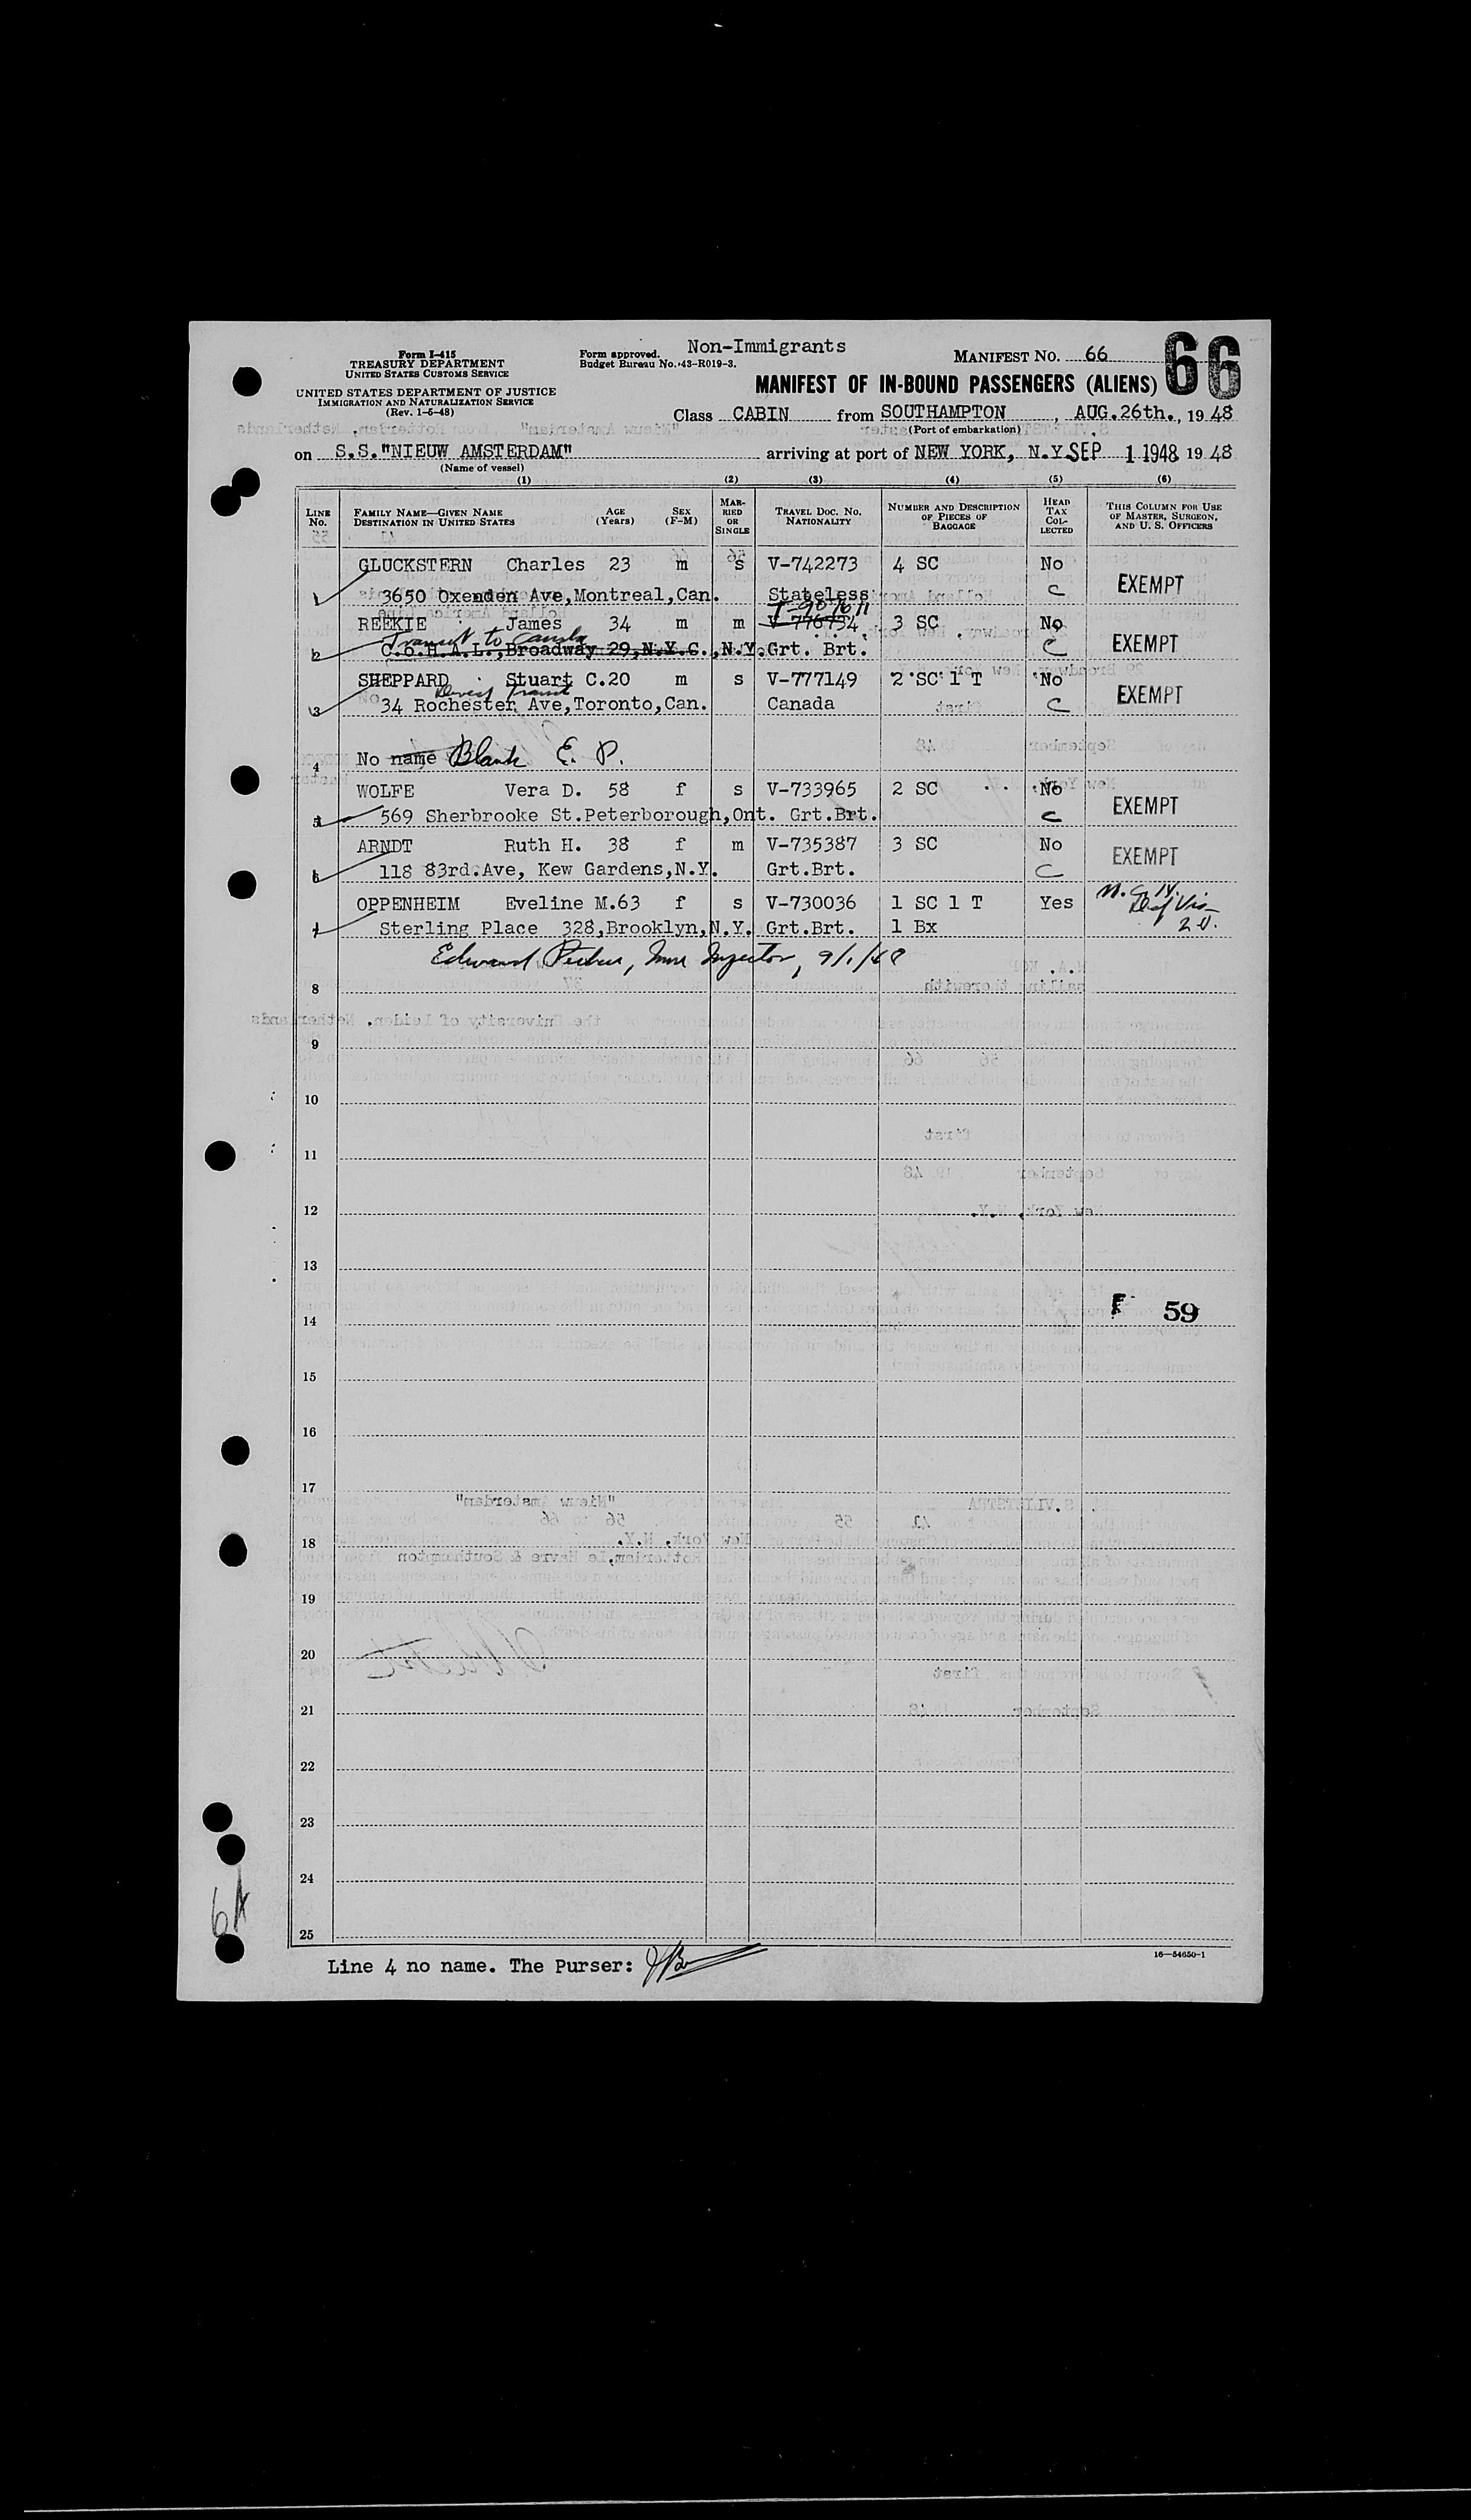 Non-Immigrants
Form I-415
TREASURY DEPARTMENT
UNITED STATES CUSTOMS SERVICE
UNITED STATES DEPARTMENT OF JUSTICE
IMMIGRATION AND NATURALIZATION SERVICE
(Rev. 1-6-48)
Form approved.
Budget Bureau No. 43-R019-3.
MANIFEST NO. 66
66
MANIFEST OF IN-BOUND PASSENGERS (ALIENS)
Class CABIN from SOUTHAMPTON, AUG.26th., 1948
(Port of embarkation)
on S.S."NIEUW AMSTERDAM" arriving at port of NEW YORK, N.Y. SEP 1 1948 1948
(Name of vessel)
(1) (2) (3) (4) (5) (6)
LINE NO. FAMILY NAME—GIVEN NAME DESTINATION IN UNITED STATES AGE (Years) SEX (F-M) MARRIED OR SINGLE TRAVEL DOC. NO. NATIONALITY NUMBER AND DESCRIPTION OF PIECES OF BAGGAGE HEAD TAX COLLECTED THIS COLUMN FOR USE OF MASTER, SURGEON, AND U. S. OFFICERS
GLUCKSTERN Charles 23 m s V-742273 4 SC No
1 3650 Oxenden Ave,Montreal,Can. Stateless C EXEMPT
REEKIE James 34 m m V-776754 3 SC No
Transit to Canada
2 C.o.H.A.L.,Broadway 29,N.Y.C.,N.Y. Grt. Brt. C EXEMPT
SHEPPARD Stuart C. 20 m s V-777149 2 SC 1 T No
Transit
3 34 Rochester Ave,Toronto,Can. Canada C EXEMPT
4 No name Blank E. P.
WOLFE Vera D. 58 f s V-733965 2 SC No
5 569 Sherbrooke St.Peterborough,Ont. Grt.Brt. C EXEMPT
ARNDT Ruth H. 38 f m V-735387 3 SC No
6 118 83rd.Ave, Kew Gardens,N.Y. Grt.Brt. C EXEMPT
OPPENHEIM Eveline M. 63 f s V-730036 1 SC 1 T Yes
Sterling Place 328,Brooklyn,N.Y. Grt.Brt. 1 Bx
Edward Imm Inspector, 9/1/48
8
9
10
11
12
13
F 59
14
15
16
17
18
19
20
21
22
23
24
25
16—54650-1
Line 4 no name. The Purser: